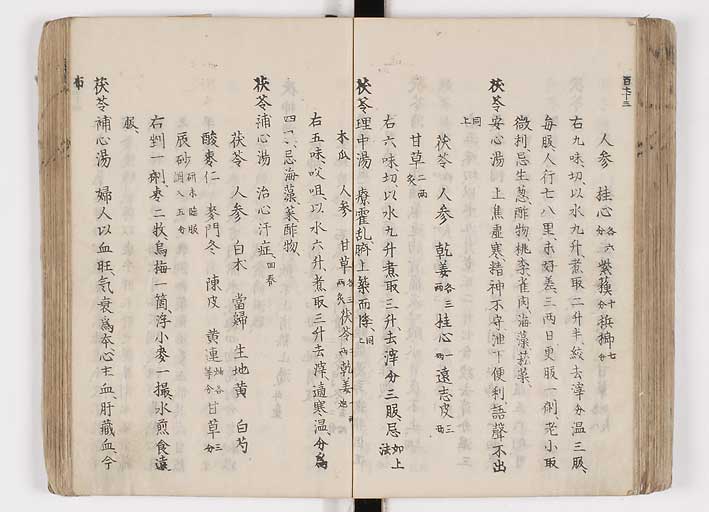 人参 桂心各六分 紫蘓十分 檳榔七分
右九味、切、以水九升、煮取二升半、絞去滓、分温三服、
每服人行七八里、未好差、三両日更服一剤、老小取
微利、忌生葱酢物桃李雀肉海藻菘菜、
茯苓安心湯 上焦虚寒精神不守、泄下便利、語聲不出
同上
茯苓 人参 乾姜各三両 桂心一両 遠志皮三両
甘草二両炙
右六味、切、以水九升、煮取三升、去滓、分三服、忌如上法
茯苓理中湯 療霍乱臍上築而悸、同上
木瓜 人参 甘草各三両炙 茯苓 乾姜
右五味、㕮咀、以水六升、煮取三升、去滓、適寒温、分為
四、忌海藻菜酢物、
茯苓補心湯 治心汗症、回春
茯苓 人参 白朮 當歸 生地黄 白芍
酸棗仁 麥門冬 陳皮 黄連各等分 甘草三分
辰砂研末臨服調入五分
右剉一剤、棗二枚烏梅一箇、浮小麥一撮、水煎食遠
服、
茯苓補心湯 婦人以血旺、気衰為本、心主血、肝蔵血、今